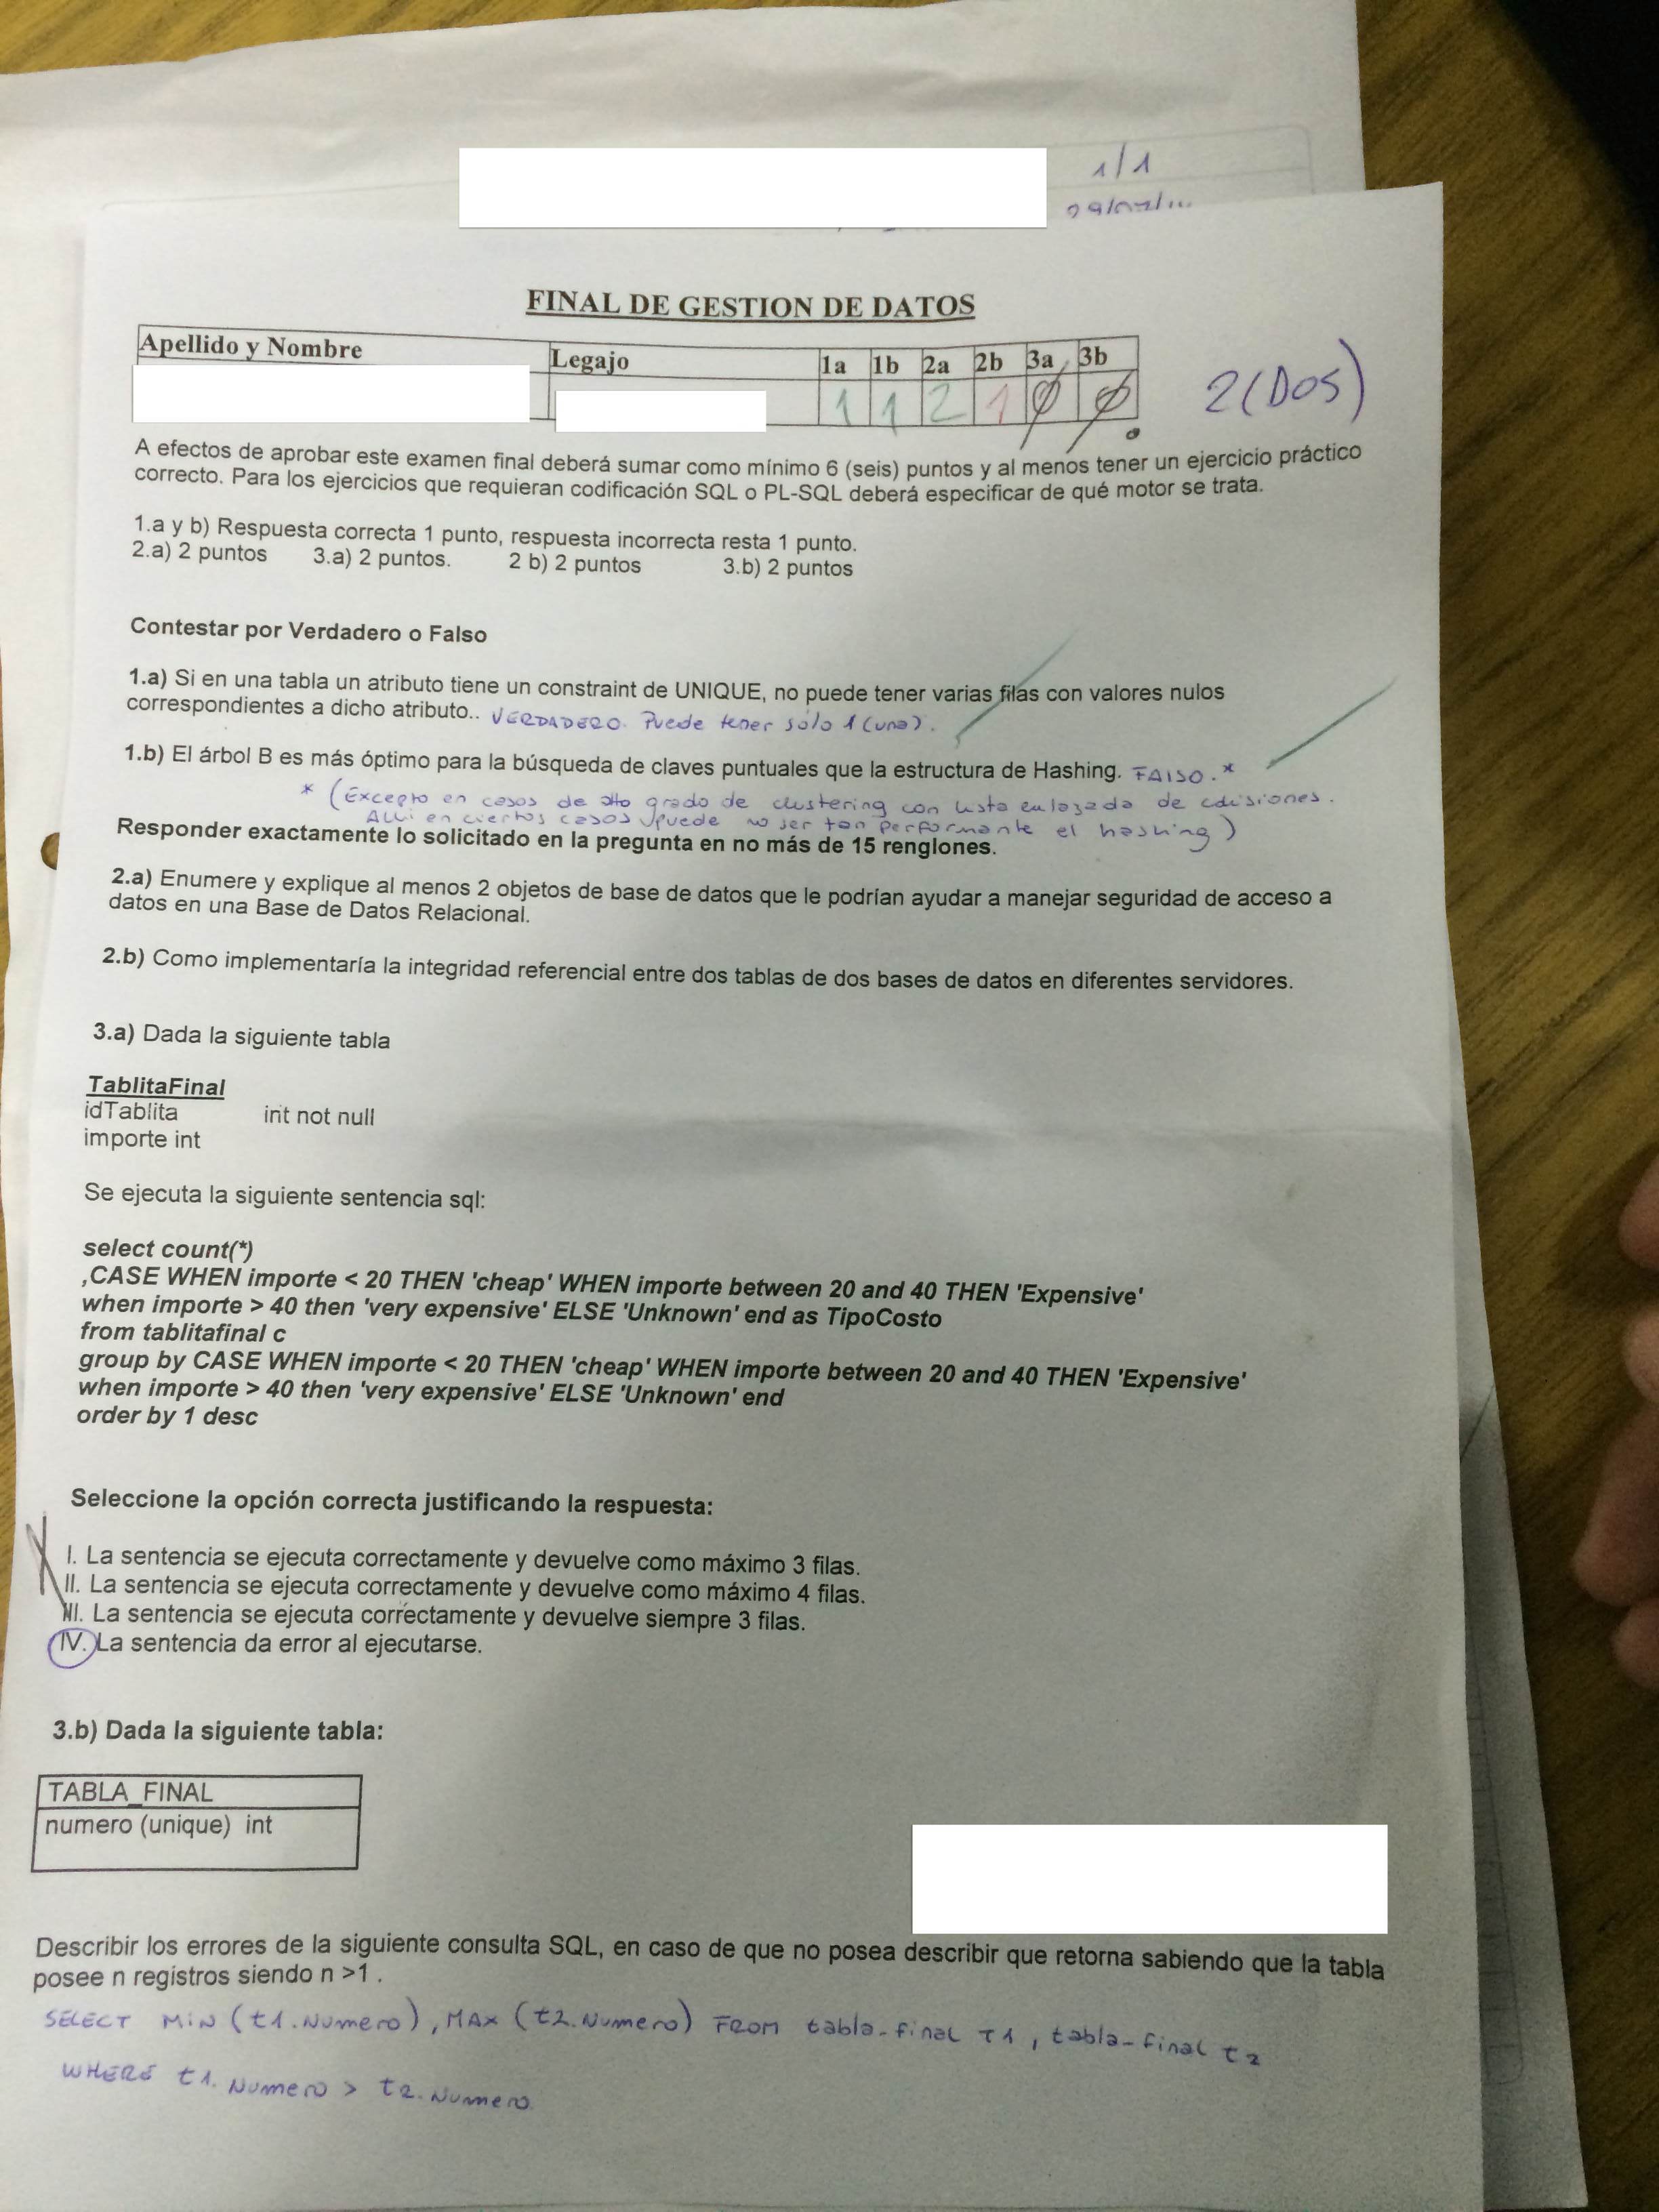 1/1
FINAL DE GESTION DE DATOS
Apellido y Nombre Legajo 1a 1b 2a 2b 3a 3b
1 1 2 1 Ø Ø
2 (DOS)
A efectos de aprobar este examen final deberá sumar como mínimo 6 (seis) puntos y al menos tener un ejercicio práctico
correcto. Para los ejercicios que requieran codificación SQL o PL-SQL deberá especificar de qué motor se trata.
1.a y b) Respuesta correcta 1 punto, respuesta incorrecta resta 1 punto.
2.a) 2 puntos 3.a) 2 puntos. 2 b) 2 puntos 3.b) 2 puntos
Contestar por Verdadero o Falso
1.a) Si en una tabla un atributo tiene un constraint de UNIQUE, no puede tener varias filas con valores nulos
correspondientes a dicho atributo.. VERDADERO. Puede tener sólo 1 (uno).
1.b) El árbol B es más óptimo para la búsqueda de claves puntuales que la estructura de Hashing. FALSO.*
* (Excepto en casos de alto grado de clustering con lista enlazada de colisiones.
Allí en ciertos casos puede no ser tan performante el hashing)
Responder exactamente lo solicitado en la pregunta en no más de 15 renglones.
2.a) Enumere y explique al menos 2 objetos de base de datos que le podrían ayudar a manejar seguridad de acceso a
datos en una Base de Datos Relacional.
2.b) Como implementaría la integridad referencial entre dos tablas de dos bases de datos en diferentes servidores.
3.a) Dada la siguiente tabla
TablitaFinal
idTablita int not null
importe int
Se ejecuta la siguiente sentencia sql:
select count(*)
,CASE WHEN importe < 20 THEN 'cheap' WHEN importe between 20 and 40 THEN 'Expensive'
when importe > 40 then 'very expensive' ELSE 'Unknown' end as TipoCosto
from tablitafinal c
group by CASE WHEN importe < 20 THEN 'cheap' WHEN importe between 20 and 40 THEN 'Expensive'
when importe > 40 then 'very expensive' ELSE 'Unknown' end
order by 1 desc
Seleccione la opción correcta justificando la respuesta:
I. La sentencia se ejecuta correctamente y devuelve como máximo 3 filas.
II. La sentencia se ejecuta correctamente y devuelve como máximo 4 filas.
III. La sentencia se ejecuta correctamente y devuelve siempre 3 filas.
IV. La sentencia da error al ejecutarse.
3.b) Dada la siguiente tabla:
TABLA_FINAL
numero (unique) int
Describir los errores de la siguiente consulta SQL, en caso de que no posea describir que retorna sabiendo que la tabla
posee n registros siendo n >1 .
SELECT MIN (t1.Numero), MAX (t2.Numero) FROM tabla-final T1, tabla-final t2
WHERE t1.Numero > t2.Numero